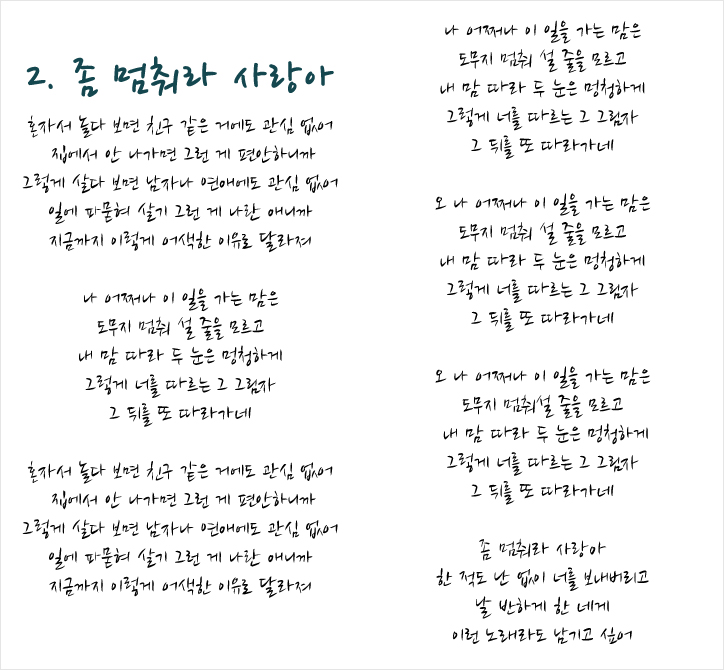 2. 좀 멈춰라 사랑아
혼자서 놀다 보면 친구 같은 거에도 관심 없어
집에서 안 나가면 그런 게 편안하니까
그렇게 살다 보면 남자나 연애에도 관심 없어
일에 파묻혀 살기 그런 게 나란 애니까
지금까지 이렇게 어색한 이유로 달라져
나 어쩌나 이 일을 가는 맘은
도무지 멈춰 설 줄을 모르고
내 맘 따라 두 눈은 멍청하게
그렇게 너를 따르는 그 그림자
그 뒤를 또 따라가네
혼자서 놀다 보면 친구 같은 거에도 관심 없어
집에서 안 나가면 그런 게 편안하니까
그렇게 살다 보면 남자나 연애에도 관심 없어
일에 파묻혀 살기 그런 게 나란 애니까
지금까지 이렇게 어색한 이유로 달라져
나 어쩌나 이 일을 가는 맘은
도무지 멈춰 설 줄을 모르고
내 맘 따라 두 눈은 멍청하게
그렇게 너를 따르는 그 그림자
그 뒤를 또 따라가네
오 나 어쩌나 이 일을 가는 맘은
도무지 멈춰 설 줄을 모르고
내 맘 따라 두 눈은 멍청하게
그렇게 너를 따르는 그 그림자
그 뒤를 또 따라가네
오 나 어쩌나 이 일을 가는 맘은
도무지 멈춰설 줄을 모르고
내 맘 따라 두 눈은 멍청하게
그렇게 너를 따르는 그 그림자
그 뒤를 또 따라가네
좀 멈춰라 사랑아
한 적도 난 없이 너를 보내버리고
날 반하게 한 네게
이런 노래라도 남기고 싶어